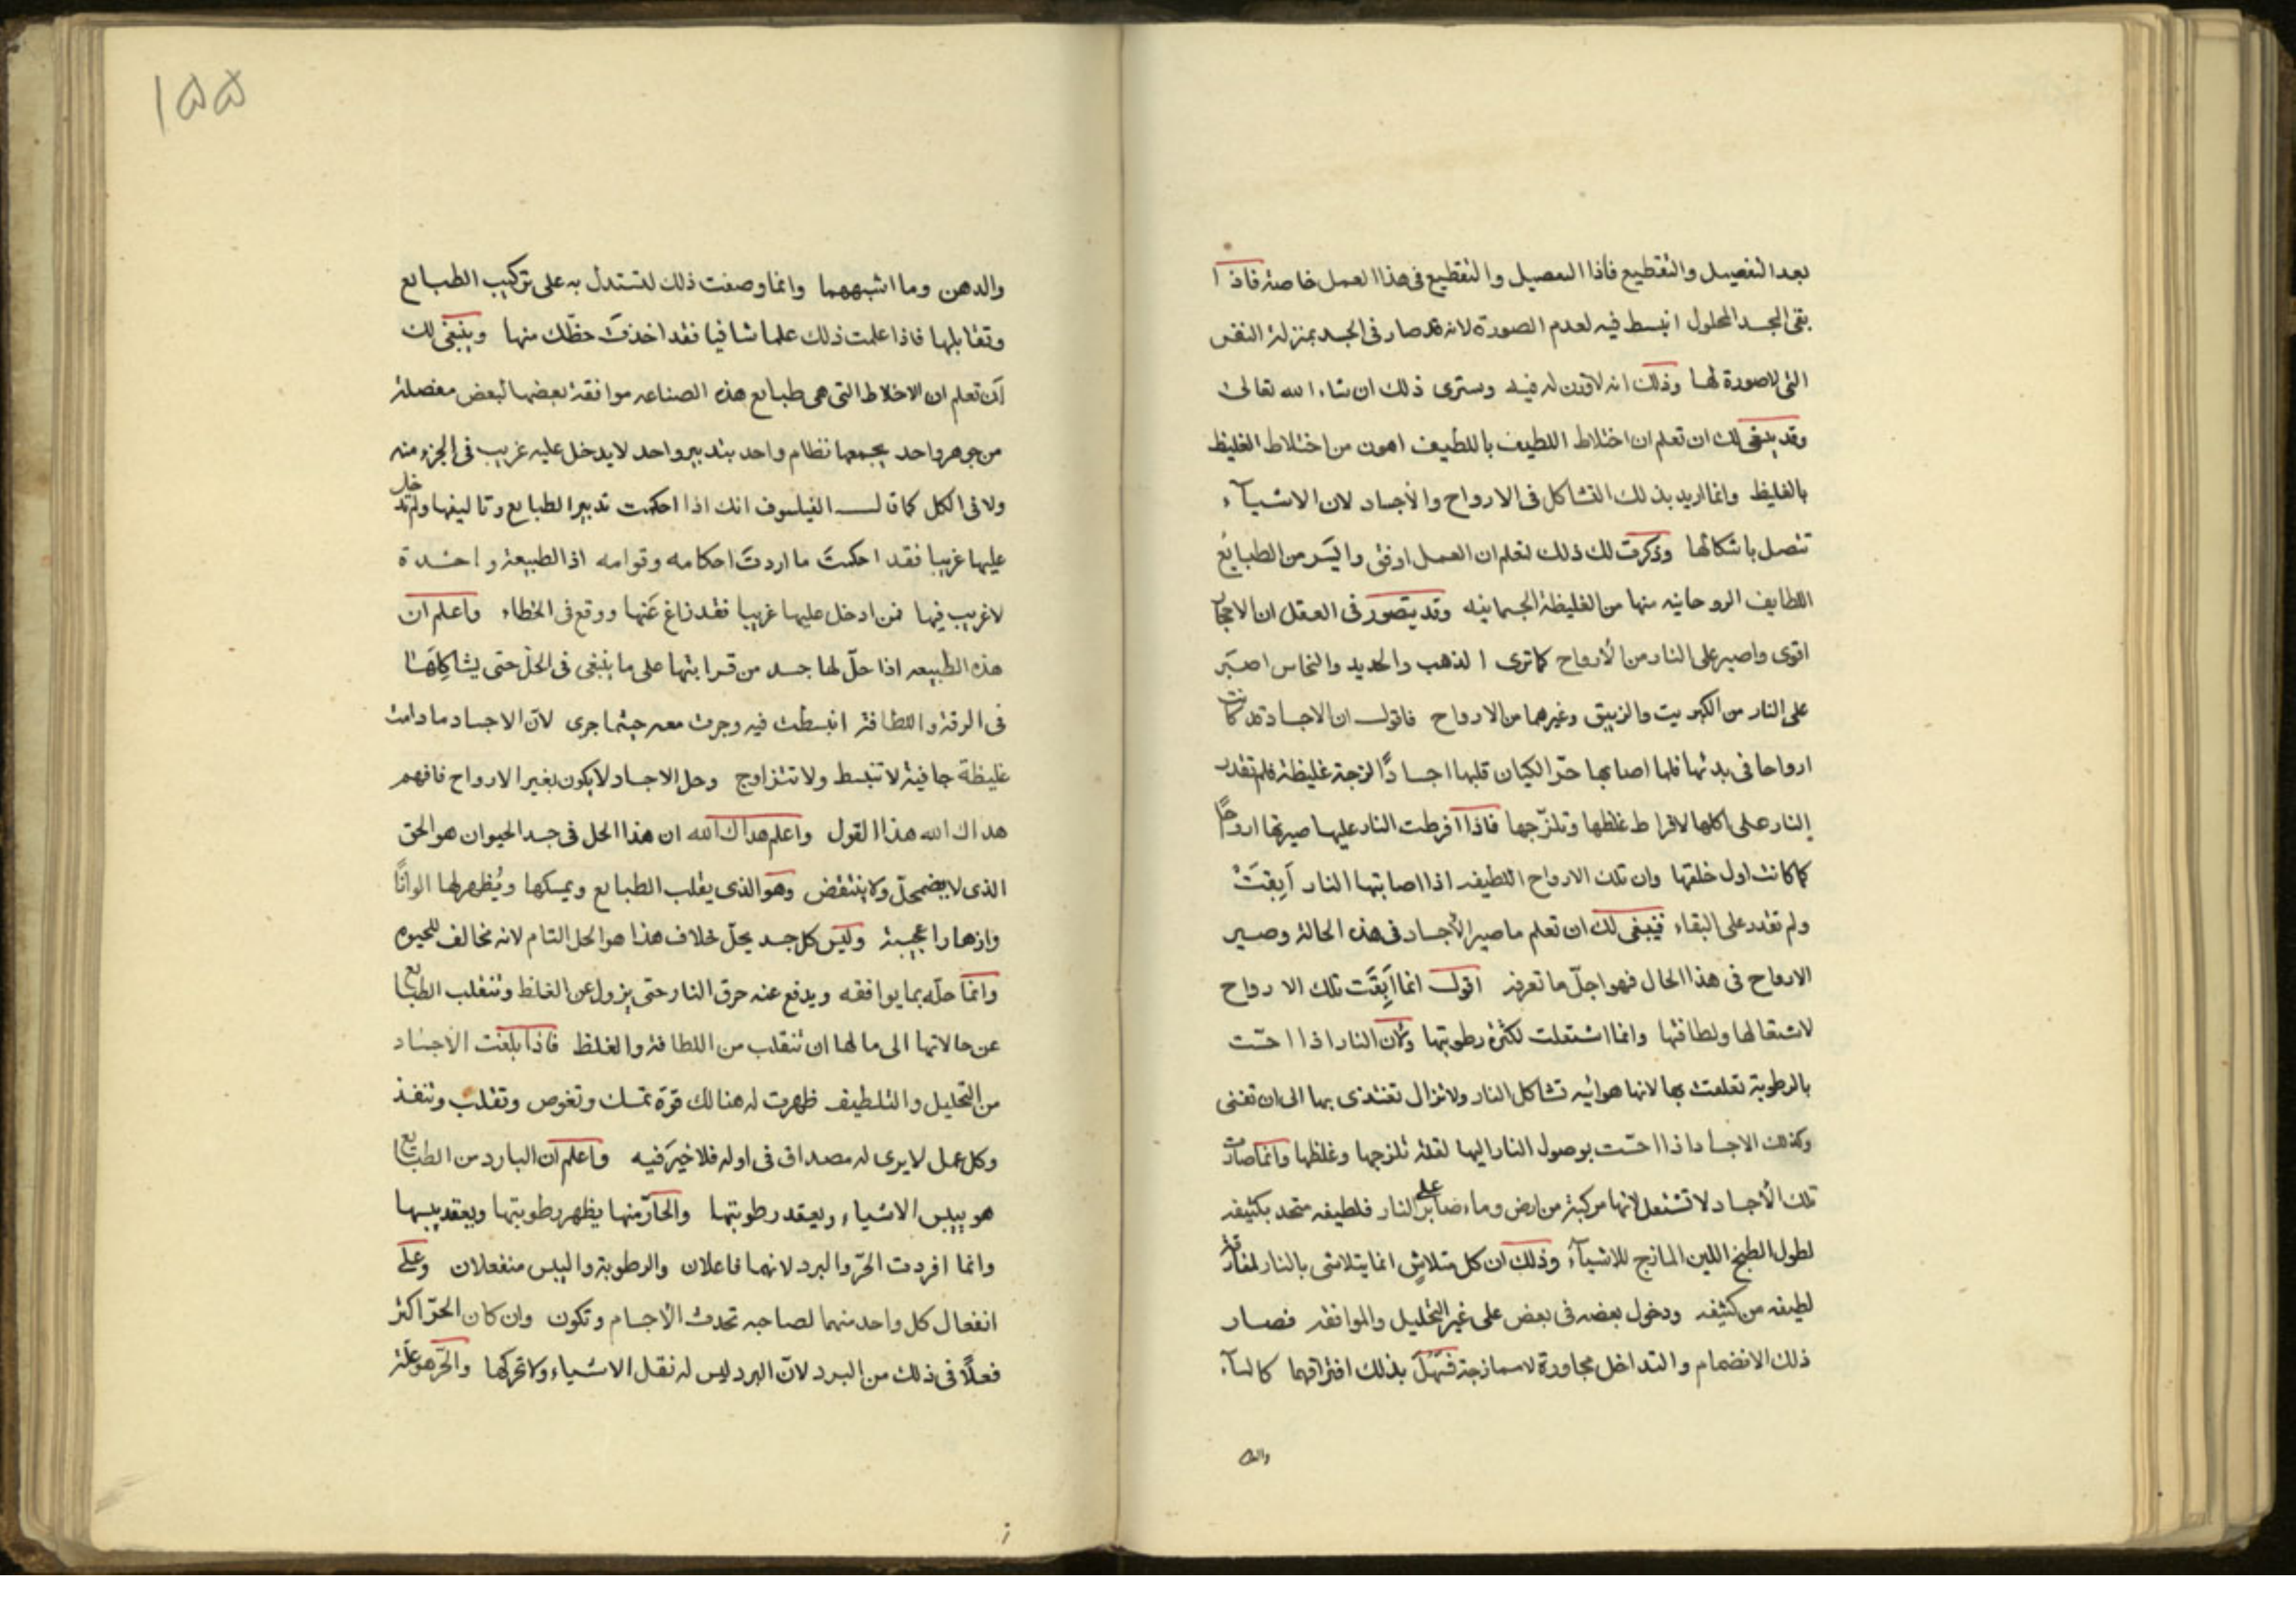 بعد التفصيل والتقطيع فاذا التفصيل والتقطيع فى هذا العمل خاصة فاذا
بقى الجسد المحلول انبسط فيه لعدم الصورة لانه قد صار فى الجسد بمنزلة النفس
التى لا صورة لها وذلك انه لا وزن له فيه وسترى ذلك ان شاء الله تعالى
وقد ينبغى لك ان تعلم ان اختلاط اللطيف باللطيف اهون من اختلاط الغليظ
بالغليظ وانما اريد بذلك التشاكل فى الارواح والأجساد لان الاشيآء
تتصل باشكالها وذكرت لك ذلك لتعلم ان العمل اوفق وايسر من الطبايع
اللطايف الروحانيه منها من الغليظة الجسمانيه وقد يتصور فى العقل ان الاحجار
اقوى واصبر على النار من الأرواح كما ترى الذهب والحديد والنحاس اصبر
على النار من الكبريت والزيبق وغيرهما من الارواح فاقول ان الاجساد قد كانت
ارواحا فى بدئها فلما اصابها حرّ الكيان قلبها اجسادًا لزجة غليظة فلم تقدر
النار على اكلها لافراط غلظها وتلزّجها فاذا افرطت النار عليها صيرتها ارواحًا
كما كانت اول خلقتها وان تلك الارواح اللطيفه اذا اصابتها النار أبقت
ولم تقدر على البقاء فينبغى لك ان تعلم ما صير الأجساد فى هذه الحالة وصير
الارواح فى هذا الحال فهو اجلّ ما تعرفه اقول انما أبقت تلك الارواح
لاشتعالها ولطافتها وانما اشتعلت لكثرة رطوبتها ولان النار اذا احسّت
بالرطوبة تعلقت بها لانها هوائيه تشاكل النار ولا تزال تغتذى بها الى ان تفنى
وكذلك الاجساد اذا احسّت بوصول النار اليها لقلة تلزجها وغلظها وانما صارت
تلك الأجساد لا تشتعل لانها مركبة من ارض وماء صابر على النار فلطيفه متحد بكثيفه
لطول الطبخ اللين المازج للاشيآء وذلك ان كل متلاشٍ انما يتلاشى بالنار لمفارقة
لطيفه من كثيفه ودخول بعضه فى بعض على غير التحليل والموافقة فصار
ذلك الانضمام والتداخل مجاورة لا ممازجة فسهل بذلك افتراقهما كالمآء
والد
١٥٥
والدهن وما اشبههما وانما وصفت ذلك لتستدل به على تركيب الطبايع
وتقابلها فاذا علمت ذلك علما شافيا فقد اخذت حظّك منها وينبغى لك
أن تعلم ان الاخلاط التى هى طبايع هذه الصناعه موافقة بعضها لبعض مفصلة
من جوهر واحد يجمعها نظام واحد بتدبير واحد لا يدخل عليه غريب فى الجزء منه
ولا فى الكل كما قال الفيلسوف انك اذا احكمت تدبير الطبايع وتاليفها ولم تدخل
عليها غريبا فقد احكمتَ ما اردتَ احكامه وقوامه اذ الطبيعة واحدة
لا غريب فيها فمن ادخل عليها غريبا فقد زاغ عنها ووقع فى الخطاء واعلم ان
هذه الطبيعه اذا حلّ لها جسد من قرابتها على ما ينبغى فى الحلّ حتى يشاكلها
فى الرقة واللطافة انبسطت فيه وجرت معه حيثما جرى لانّ الاجساد ما دامت
غليظة جافية لا تنبسط ولا تتزاوج وحل الاجساد لا يكون بغير الارواح فافهم
هداك الله هذا القول واعلم هداك الله ان هذا الحل فى جسد الحيوان هو الحق
الذى لا يضمحلّ ولا ينتقض وهو الذى يقلب الطبايع ويمسكها ويُظهر لها الوانًا
وازهارا عجيبة وليس كل جسد يحلّ خلاف هذا هو الحل التام لانه مخالف للحيوه
وانما حلّه بما يوافقه ويدفع عنه حرق النار حتى يزول عن الغلظ وتنقلب الطبايع
عن حالاتها الى ما لها ان تنقلب من اللطافة والغلظ فاذا بلغت الاجساد
من التحليل والتلطيف ظهرت له هنالك قوّة تمسك وتغوص وتقلب وتنفذ
وكل عمل لا يرى له مصداق فى اوله فلا خير فيه واعلم ان البارد من الطبايع
هو ييبس الاشياء ويعقد رطوبتها والحارّ منها يظهر رطوبتها ويعقد يبسها
وانما افردت الحرّ والبرد لانهما فاعلان والرطوبة واليبس منفعلان وعلى
انفعال كل واحد منهما لصاحبه تحدث الأجسام وتكون وان كان الحرّ اكثر
فعلًا فى ذلك من البرد لانّ البرد ليس له نقل الاشياء ولا تحركها والحرّ هو علّة